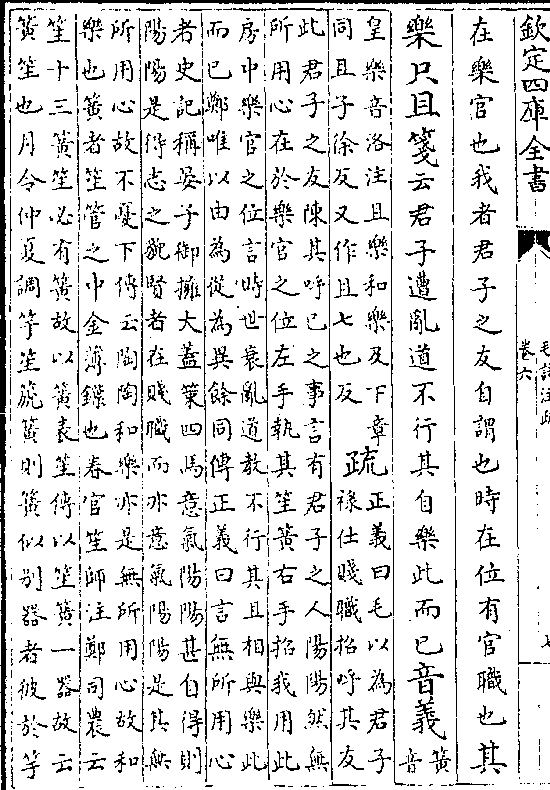 欽定四庫全書
毛詩注疏
卷六
七
在樂官也我者君子之友自謂也時在位有官職也其
樂只且箋云君子遭亂道不行其自樂此而已音義簧音
皇樂音洛注且樂和樂及下章
同且子徐反又作且七也反
疏
正義曰毛以為君子
祿仕賤職招呼其友
此君子之友陳其呼已之事言有君子之人陽陽然無
所用心在於樂官之位左手執其笙簧右手招我用此
房中樂官之位言時世衰亂道教不行其且相與樂此
而已鄭唯以由為從為異餘同傳正義曰言無所用心
者史記稱晏子御擁大蓋策四馬意氣陽陽甚自得則
陽陽是得志之貌賢者在賤職而亦意氣陽陽是其無
所用心故不憂下傳云陶陶和樂亦是無所用心故和
樂也簧者笙管之中金薄鐷也春官笙師注鄭司農云
笙十三簧笙必有簧故以簧表笙傳以笙簧一器故云
簧笙也月令仲夏調竽笙箎簧則簧似別器者彼於竽